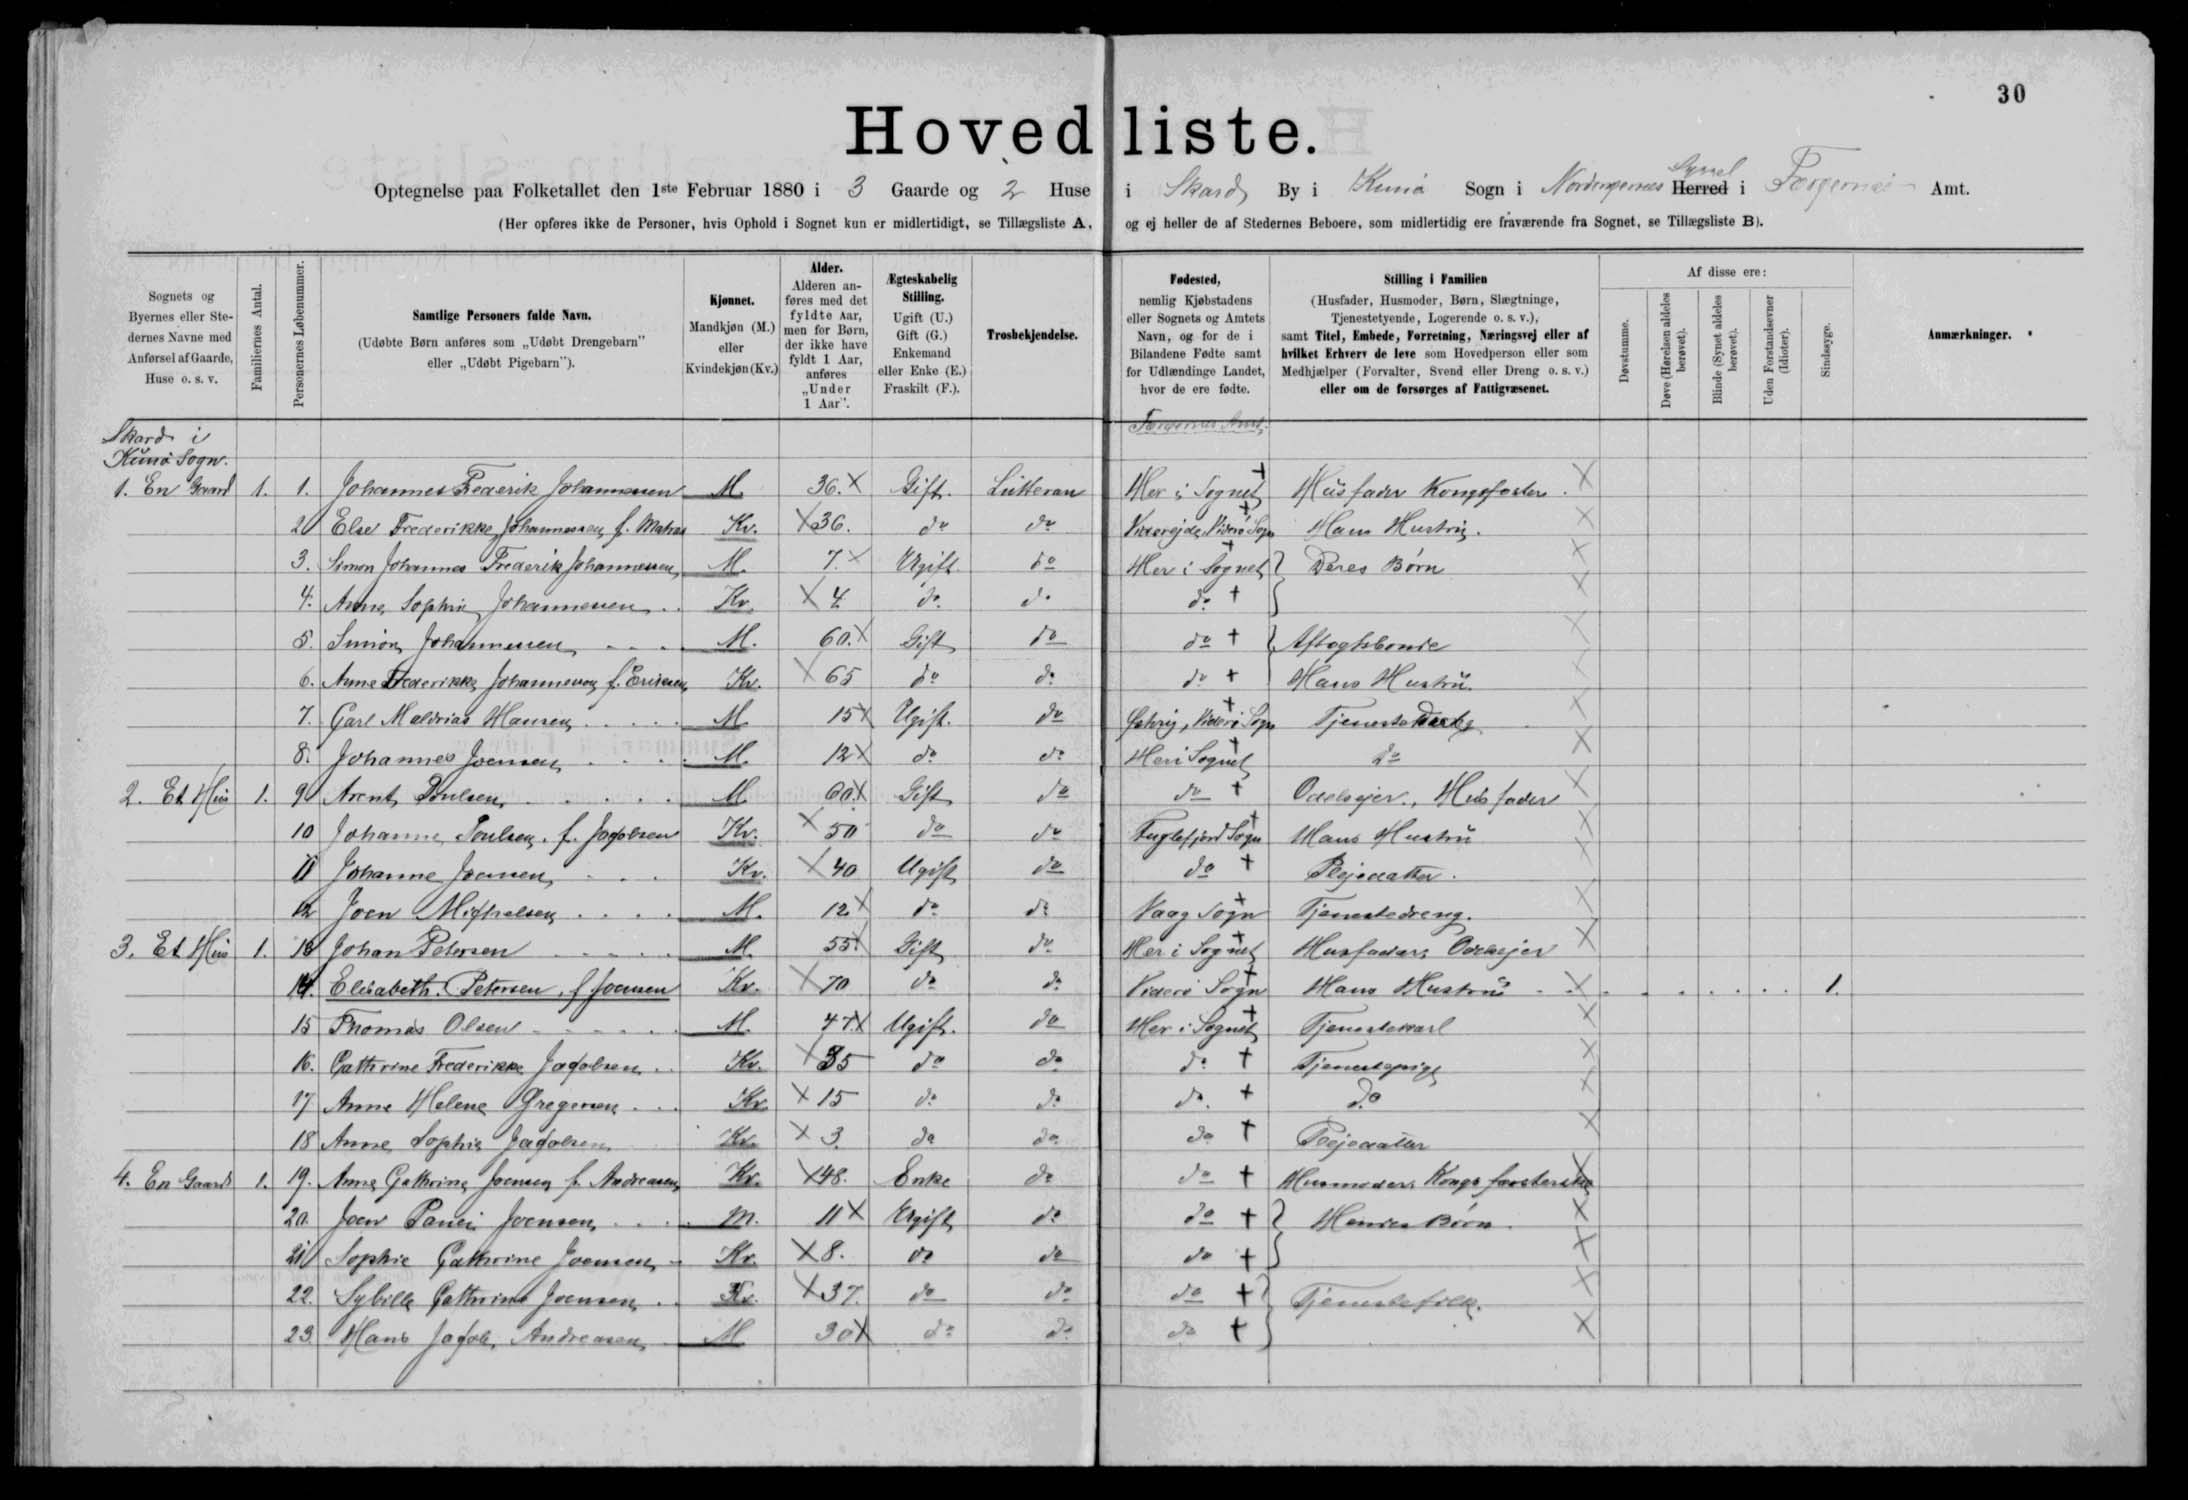 30
Hovedliste.
Optegnelse paa Folketallet den 1ste Februar 1880 i 3 Gaarde og 2 Huse i Skard By i Kunø Sogn i Norderøernes Syssel Herred i Færøerne Amt.
(Her opføres ikke de Personer, hvis Ophold i Sognet kun er midlertidigt, se Tillægsliste A, og ej heller de af Stedernes Beboere, som midlertidig ere fraværende fra Sognet, se Tillægsliste B).
Sognets og Byernes eller Stedernes Navne med Anførsel af Gaarde, Huse o. s. v.
Familiernes Antal.
Personernes Løbenummer.
Samtlige Personers fulde Navn.
(Udøbte Børn anføres som „Udøbt Drengebarn" eller „Udøbt Pigebarn").
Kjønnet.
Mandkjøn (M.) eller Kvindekjøn (Kv.)
Alder.
Alderen anføres med det fyldte Aar, men for Børn, der ikke have fyldt 1 Aar, anføres „Under 1 Aar".
Ægteskabelig Stilling.
Ugift (U.) Gift (G.) Enkemand eller Enke (E.) Fraskilt (F.).
Trosbekjendelse.
Fødested,
nemlig Kjøbstadens eller Sognets og Amtets Navn, og for de i Bilandene Fødte samt for Udlændinge Landet, hvor de ere fødte.
Stilling i Familien
(Husfader, Husmoder, Børn, Slægtninge, Tjenestetyende, Logerende o. s. v.),
samt Titel, Embede, Forretning, Næringsvej eller af hvilket Erhverv de leve som Hovedperson eller som Medhjælper (Forvalter, Svend eller Dreng o. s. v.) eller om de forsørges af Fattigvæsenet.
Af disse ere:
Døvstumme.
Døve (Hørelsen aldeles berøvet).
Blinde (Synet aldeles berøvet).
Uden Forstandsevner (Idioter).
Sindssyge.
Anmærkninger.
Skard i
Kunø Sogn.
Færøernes Amt.
1. En Gaard 1. 1. Johannes Frederik Johannessen M. 36. X Gift. Lutteran Her i Sognet + Husfader Kongsfæster. X
2 Else Frederikke Johannessen f. Matras Kv. X 36. do do Viderejde, Viderø Sogn + Hans Hustru. X
3. Simon Johannes Frederik Johannessen M. 7. X Ugift. do Her i Sognet + Deres Børn X
4. Anne Sophie Johannessen Kv. X 4 do. do do. + X
5. Simon Johannessen M. 60. X Gift do do + Aftægtsbonde
6. Anne Frederikke Johannessen f. Ericksen Kv. X 65 do do. do + Hans Hustru.
7. Carl Maldrias Hansen M 15 X Ugift. do Viderø Sogn + X
8. Johannes Joensen M. 12 X do do Her i Sognet + do X
2. Et Hus 1. 9 Arent Poulsen M 60. X Gift do do + Odelsejer, Husfader X
10 Johanne Poulsen. f. Jacobsen Kv. X 50 do do Fuglefjord Sogn + Hans Hustru X
11 Johanne Joensen Kv. X 40 Ugift do do + Plejedatter. X
12 Joen Michelsen M. 12 X do do Vaag Sogn + Tjenestedreng. X
3. Et Hus 1. 13 Johan Petersen M. 55. X Gift do Her i Sognet + Husfader, Odelsejer X
14. Elisabeth Petersen, f Joensen Kv. X 70 do do Viderø Sogn + Hans Hustru X 1.
15 Thomas Olsen M. 47. X Ugift. do Her i Sognet + Tjenestekarl X
16. Cathrine Frederikke Jacobsen Kv. X 35 do do do + Tjenestepige X
17 Anne Helene Gregersen Kv. X 15 do do do. + do X
18 Anne Sophie Jacobsen Kv. X 3. do do do + Plejedatter X
4. En Gaard 1. 19. Anne Cathrine Joensen f. Andreasen Kv. X 48. Enke do do + Husmoder, Kongsfæsterske X
20. Joen Joensen M. 11 X Ugift do do + Hendes Børn. X
21 Sophie Cathrine Joensen Kv. X 8. do do do + X
22. Sybille Cathrine Joensen Kv. X 37. do do do + Tjenestefolk. X
23 Hans Jacob Andreasen M 30 X do do do + X